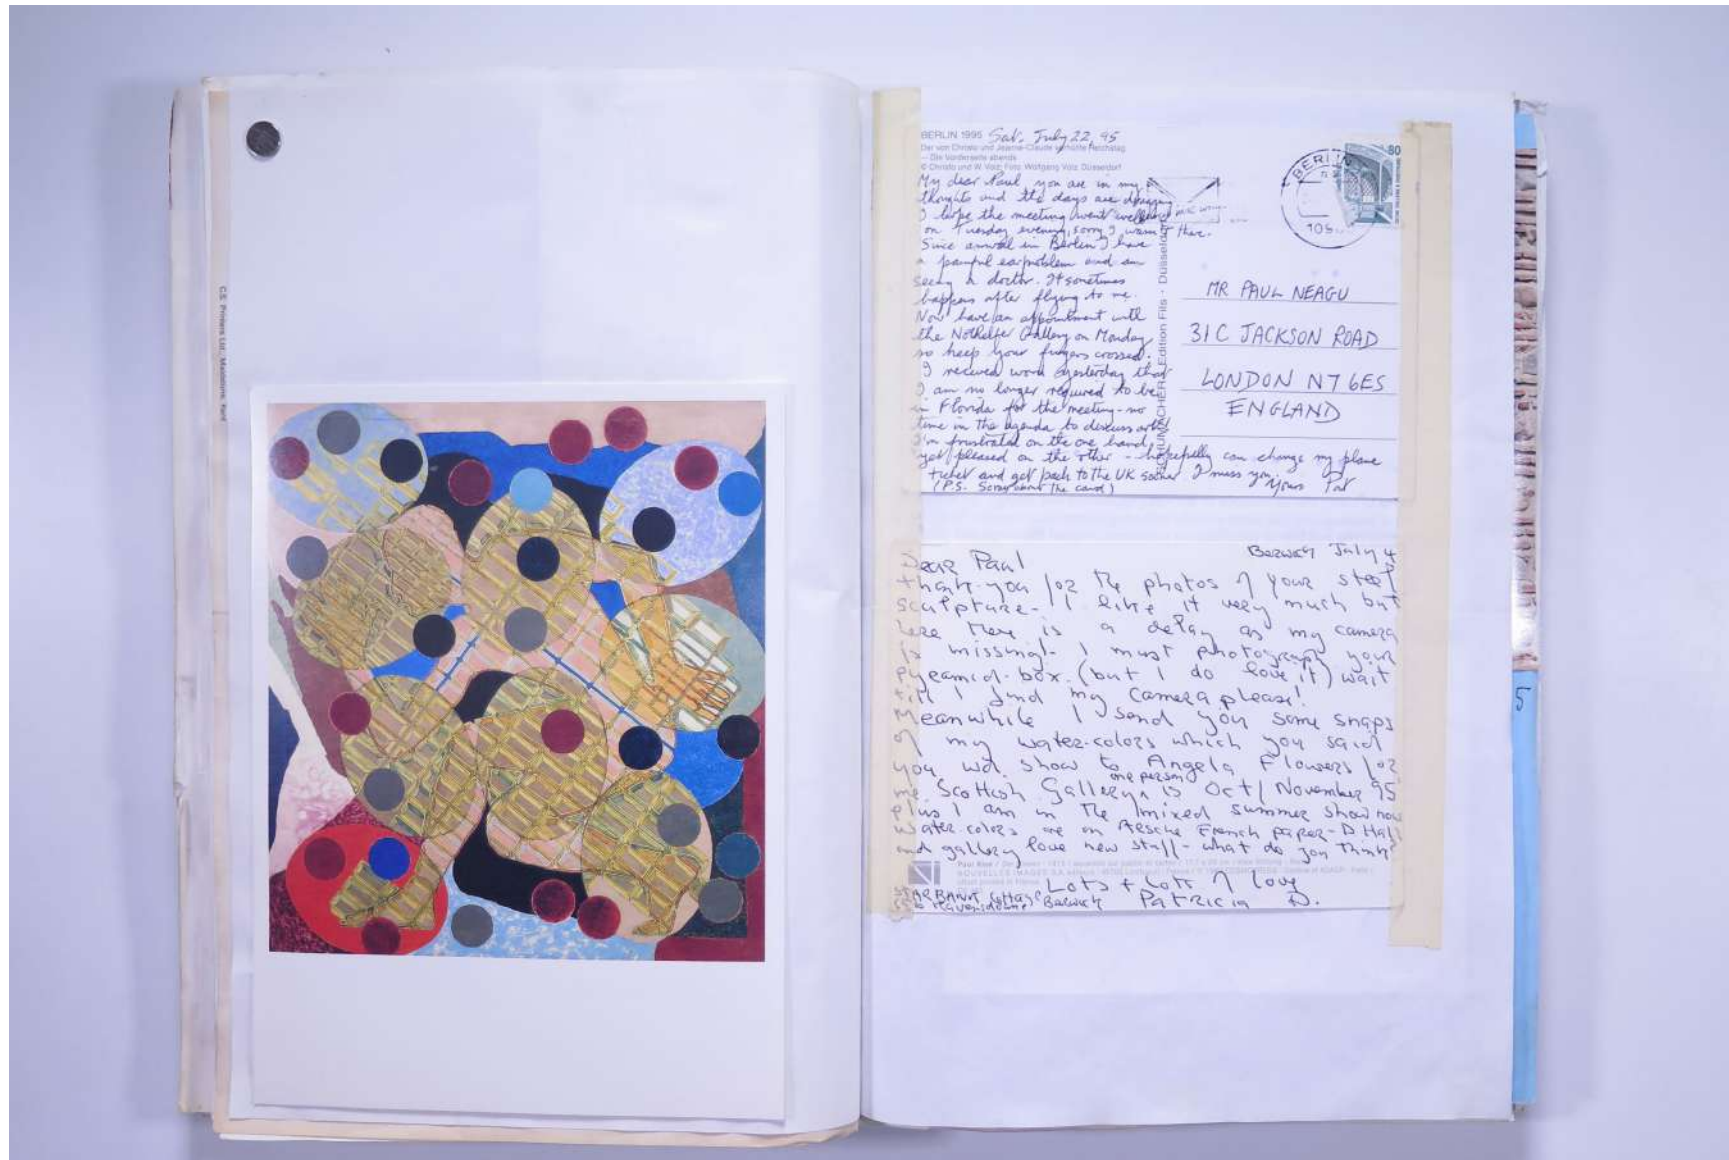 C.S. Printers Ltd., Maidstone, Kent
BERLIN 1995 Sat. July 22, 95
Der von Christo und Jeanne-Claude verhüllte Reichstag
– Die Vorderseite abends
© Christo und W. Volz; Foto: Wolfgang Volz, Düsseldorf
My dear Paul you are in my
thoughts and the days are dragging
I hope the meeting went well
on Tuesday evening, sorry I wasn't there.
Since arrival in Berlin I have
a painful ear problem and am
seeing a doctor. It sometimes
happens after flying to me.
Now have an appointment with
the Nothelfer Gallery on Monday
so keep your fingers crossed.
I received word yesterday that
I am no longer required to be
in Florida for the meeting - no
time in the agenda to discuss art!
I'm frustrated on the one hand,
yet pleased on the other - hopefully can change my plane
ticket and get back to the UK sooner I miss you. Yours Pat
(P.S. Sorry about the card)
SCHUMACHER Edition Fils · Düsseldorf
BERLIN
109
80
MR PAUL NEAGU
31C JACKSON ROAD
LONDON N7 6ES
ENGLAND
Berwick July 4
Dear Paul
thank-you for the photos of your steel
sculpture - I like it very much but
there is a delay as my camera
is missing - I must photograph your
pyramid-box (but I do love it) wait
till I find my camera please!
Meanwhile I send you some snaps
of my water-colors which you said
you wd. show to Angela Flowers for
me. Scottish Gallery one person is Oct/November 95
plus I am in the mixed summer show now
water colors are on French paper - D Hall
and gallery love new stuff - what do you think
NOUVELLES IMAGES S.A.
Lots + Lots of love
Cottage Berwick Patricia D.
5